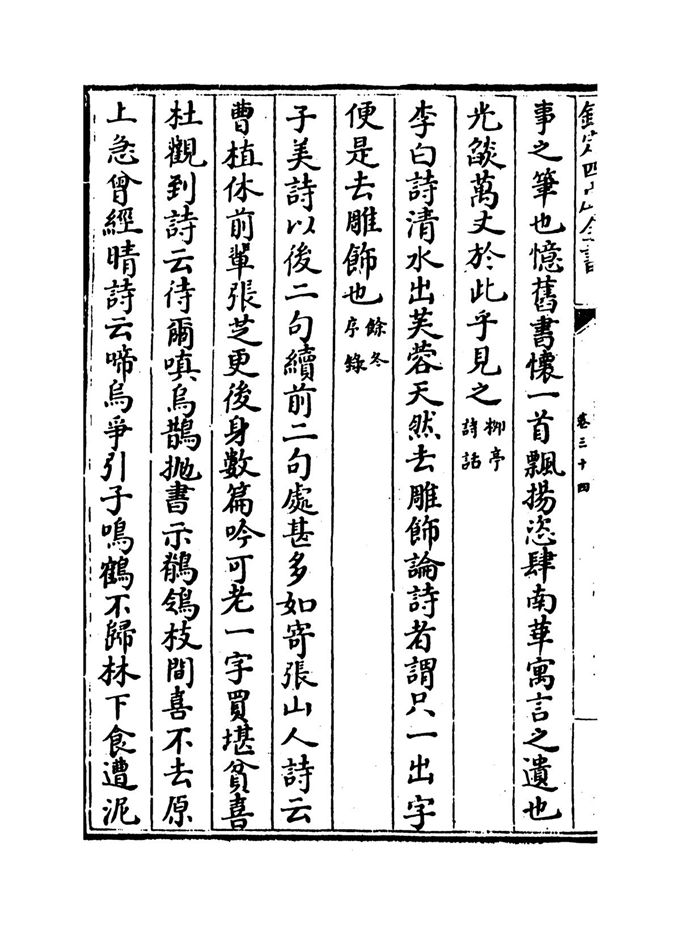 欽定四庫全書
卷三十四
事之筆也憶舊書懷一首飄揚恣肆南華寓言之遺也
光燄萬丈於此乎見之柳亭詩話
李白詩清水出芙蓉天然去雕飾論詩者謂只一出字
便是去雕飾也餘冬序錄
子美詩以後二句續前二句處甚多如寄張山人詩云
曹植休前輩張芝更後身數篇吟可老一字買堪貧喜
杜觀到詩云待爾嗔烏鵲拋書示鶺鴒枝間喜不去原
上急曾經晴詩云啼烏爭引子鳴鶴不歸林下食遭泥